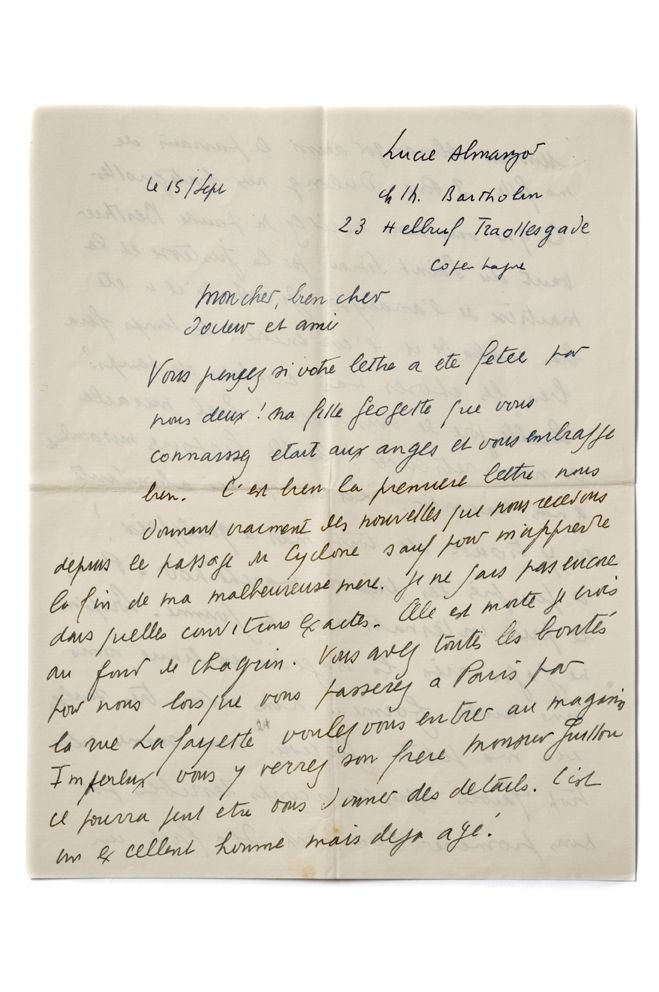 Lucie Almanzor
le 15/Sept
ch Th. Bartholin
23 Trollesgade
Copenhague
Mon cher, bien cher
Docteur et ami
Vous pensez si votre lettre a ete fetee par
nous deux! ma fille que vous
connaissez etait aux anges et vous embrasse
bien. C'est bien la premiere lettre nous
donnant vraiment des nouvelles que nous recevons
depuis le passage du Cyclone sauf pour m'apprendre
la fin de ma malheureuse mere. Je ne sais pas encore
dans quelles conditions exactes. Elle est morte je crois
au fond de chagrin. Vous avez toutes les bontés
pour nous lorsque vous passerez a Paris par
la rue La fayette 24 voulez vous entrer au magasin
vous y verrez son frere Monsieur Guillou
il pourra peut etre vous donner des details. C'est
un excellent homme mais deja agé.